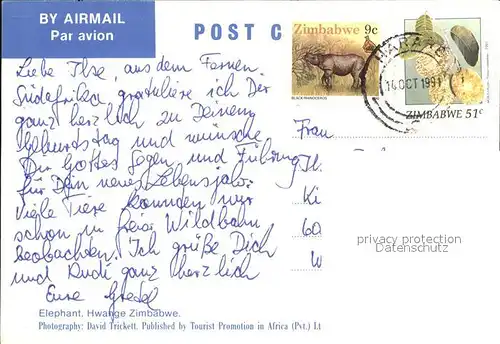 BY AIRMAIL
Par avion
POST C
Zimbabwe 9c
BLACK RHINOCEROS
HARARE
14 OCT 1991
ZIMBABWE 51c
Liebe Ilse, aus dem Fernen
Südafrika gratuliere ich Dir
ganz herzlich zu Deinem
Geburtstag und wünsche
Dir Gottes Segen und Führung
für Dein neues Lebensjahr.
Viele Tiere konnten wir
schon in freier Wildbahn
beobachten. Ich grüße Dich
und Rudi ganz herzlich
Eure Gretel
Frau
Il
Ki
60
W
privacy protection
Datenschutz
Elephant, Hwange Zimbabwe.
Photography: David Trickett. Published by Tourist Promotion in Africa (Pvt.) Lt